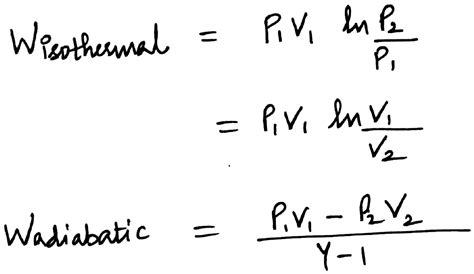 Wisothermal = P₁V₁ ln P₂/P₁
= P₁V₁ ln V₁/V₂
Wadiabatic = P₁V₁ - P₂V₂ / γ-1